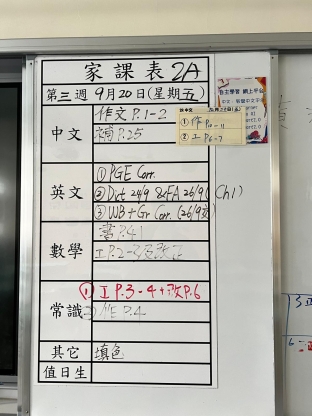 家課表2A
第三週 9月20日(星期五)
中文
作文P.1-2
補P.25
英文
① PGE Corr.
② Dict 24/9 &FA 26/9 (Ch1)
③ WB + Gr Corr. (26/9交)
數學
書P.41
工P.2-3及改正
常識
① 工P.3-4+改P.6
作P.4
其它
填色
值日生
① 作
② 工P6-7
自主學習 網上平台